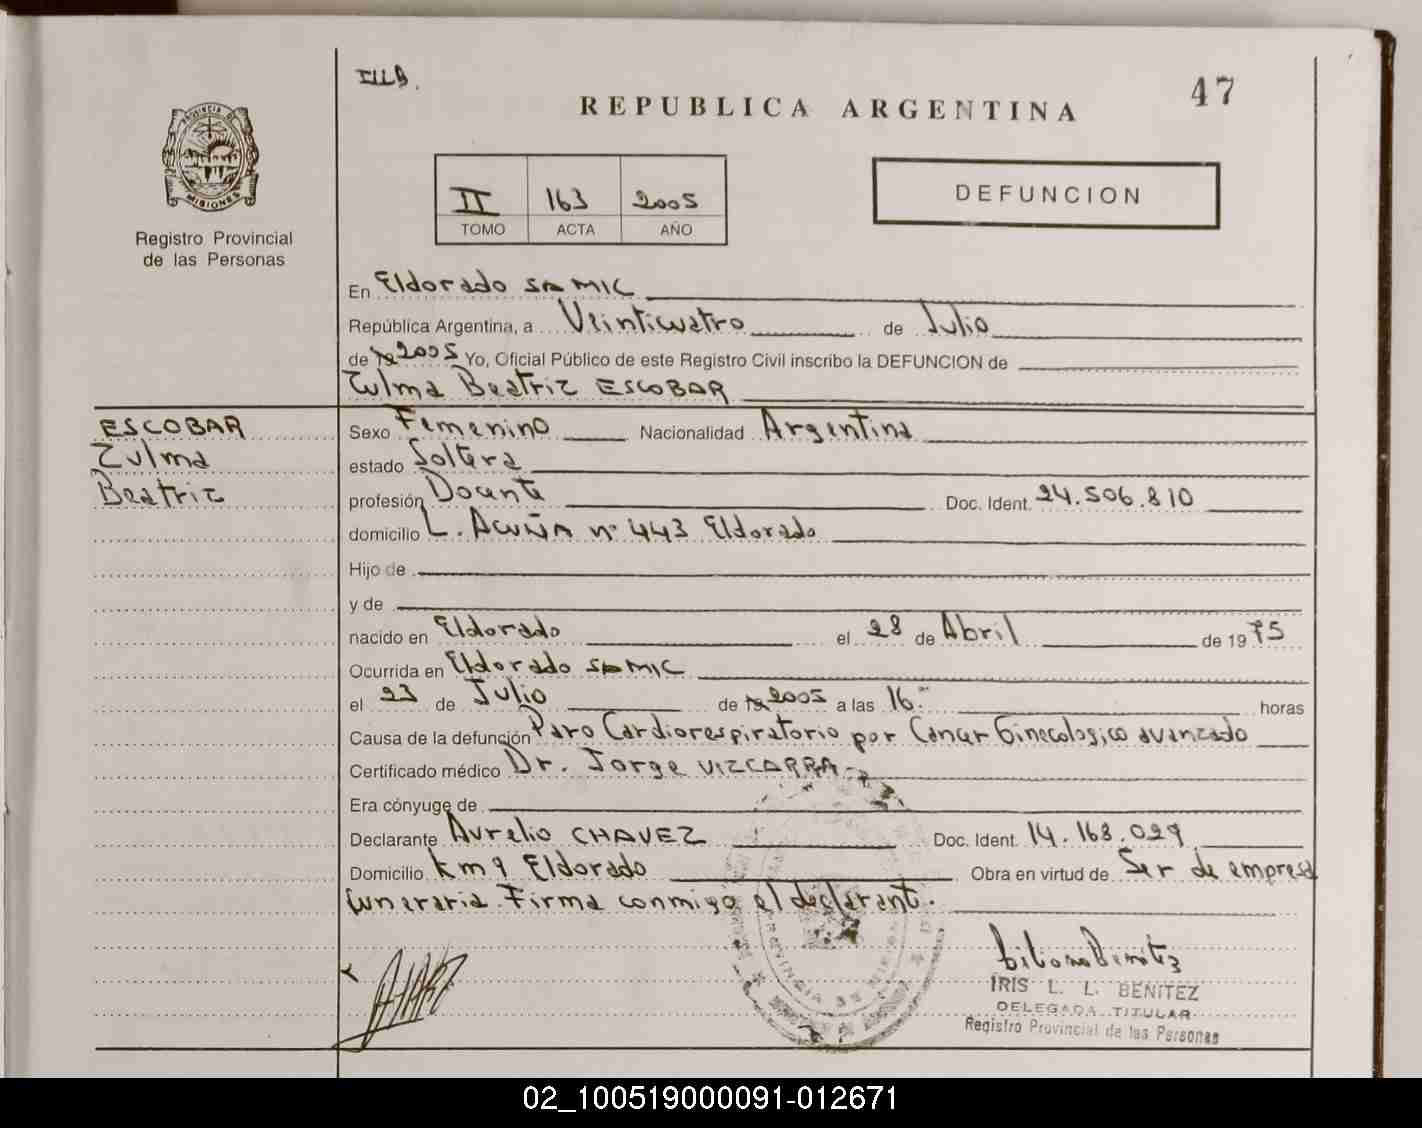 ILLB.
47
REPUBLICA ARGENTINA
PROVINCIA DE
MISIONES
II 163 2005
TOMO ACTA AÑO
DEFUNCION
Registro Provincial
de las Personas
En Eldorado SAMIC
República Argentina, a Veinticuatro de Julio
de 19 2005 Yo, Oficial Público de este Registro Civil inscribo la DEFUNCION de
Zulma Beatriz ESCOBAR
ESCOBAR
Zulma
Beatriz
Sexo Femenino Nacionalidad Argentina
estado Soltera
profesión Docente Doc. Ident. 24.506.810
domicilio L. Acuña nº 443 Eldorado
Hijo de
y de
nacido en Eldorado el 28 de Abril de 1975
Ocurrida en Eldorado SAMIC
el 23 de Julio de 19 2005 a las 16.- horas
Causa de la defunción Paro Cardiorespiratorio por Cancer Ginecologico avanzado
Certificado médico Dr. Jorge VIZCARRA
Era cónyuge de
Declarante Aurelio CHAVEZ Doc. Ident. 14.168.029
Domicilio km 9 Eldorado Obra en virtud de Ser de empresa
funeraria. Firma conmigo el declarante.
PROVINCIA DE MISIONES
IRIS L. L. BENITEZ
DELEGADA TITULAR
Registro Provincial de las Personas
02_100519000091-012671